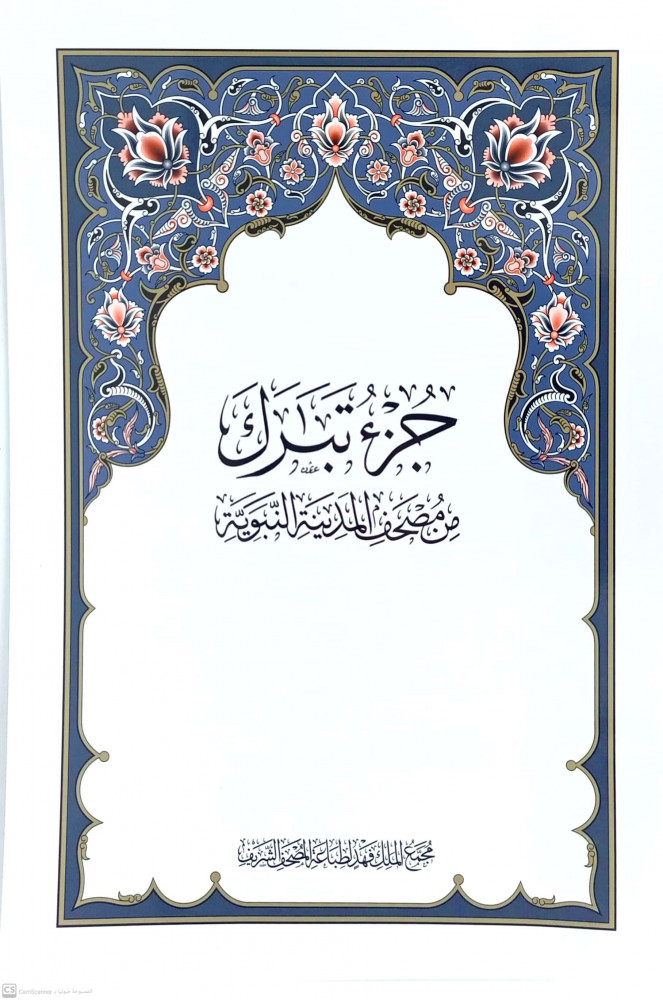 جُزْءُ تَبَٰرَكَ
مِن مُصْحَفِ المَدِينَةِ النَّبَوِيَّةِ
مُجَمَّعُ المَلِك فَهْد لِطِبَاعَةِ المُصْحَفِ الشَّرِيفِ
CS CamScanner الممسوحة ضوئيا بـ